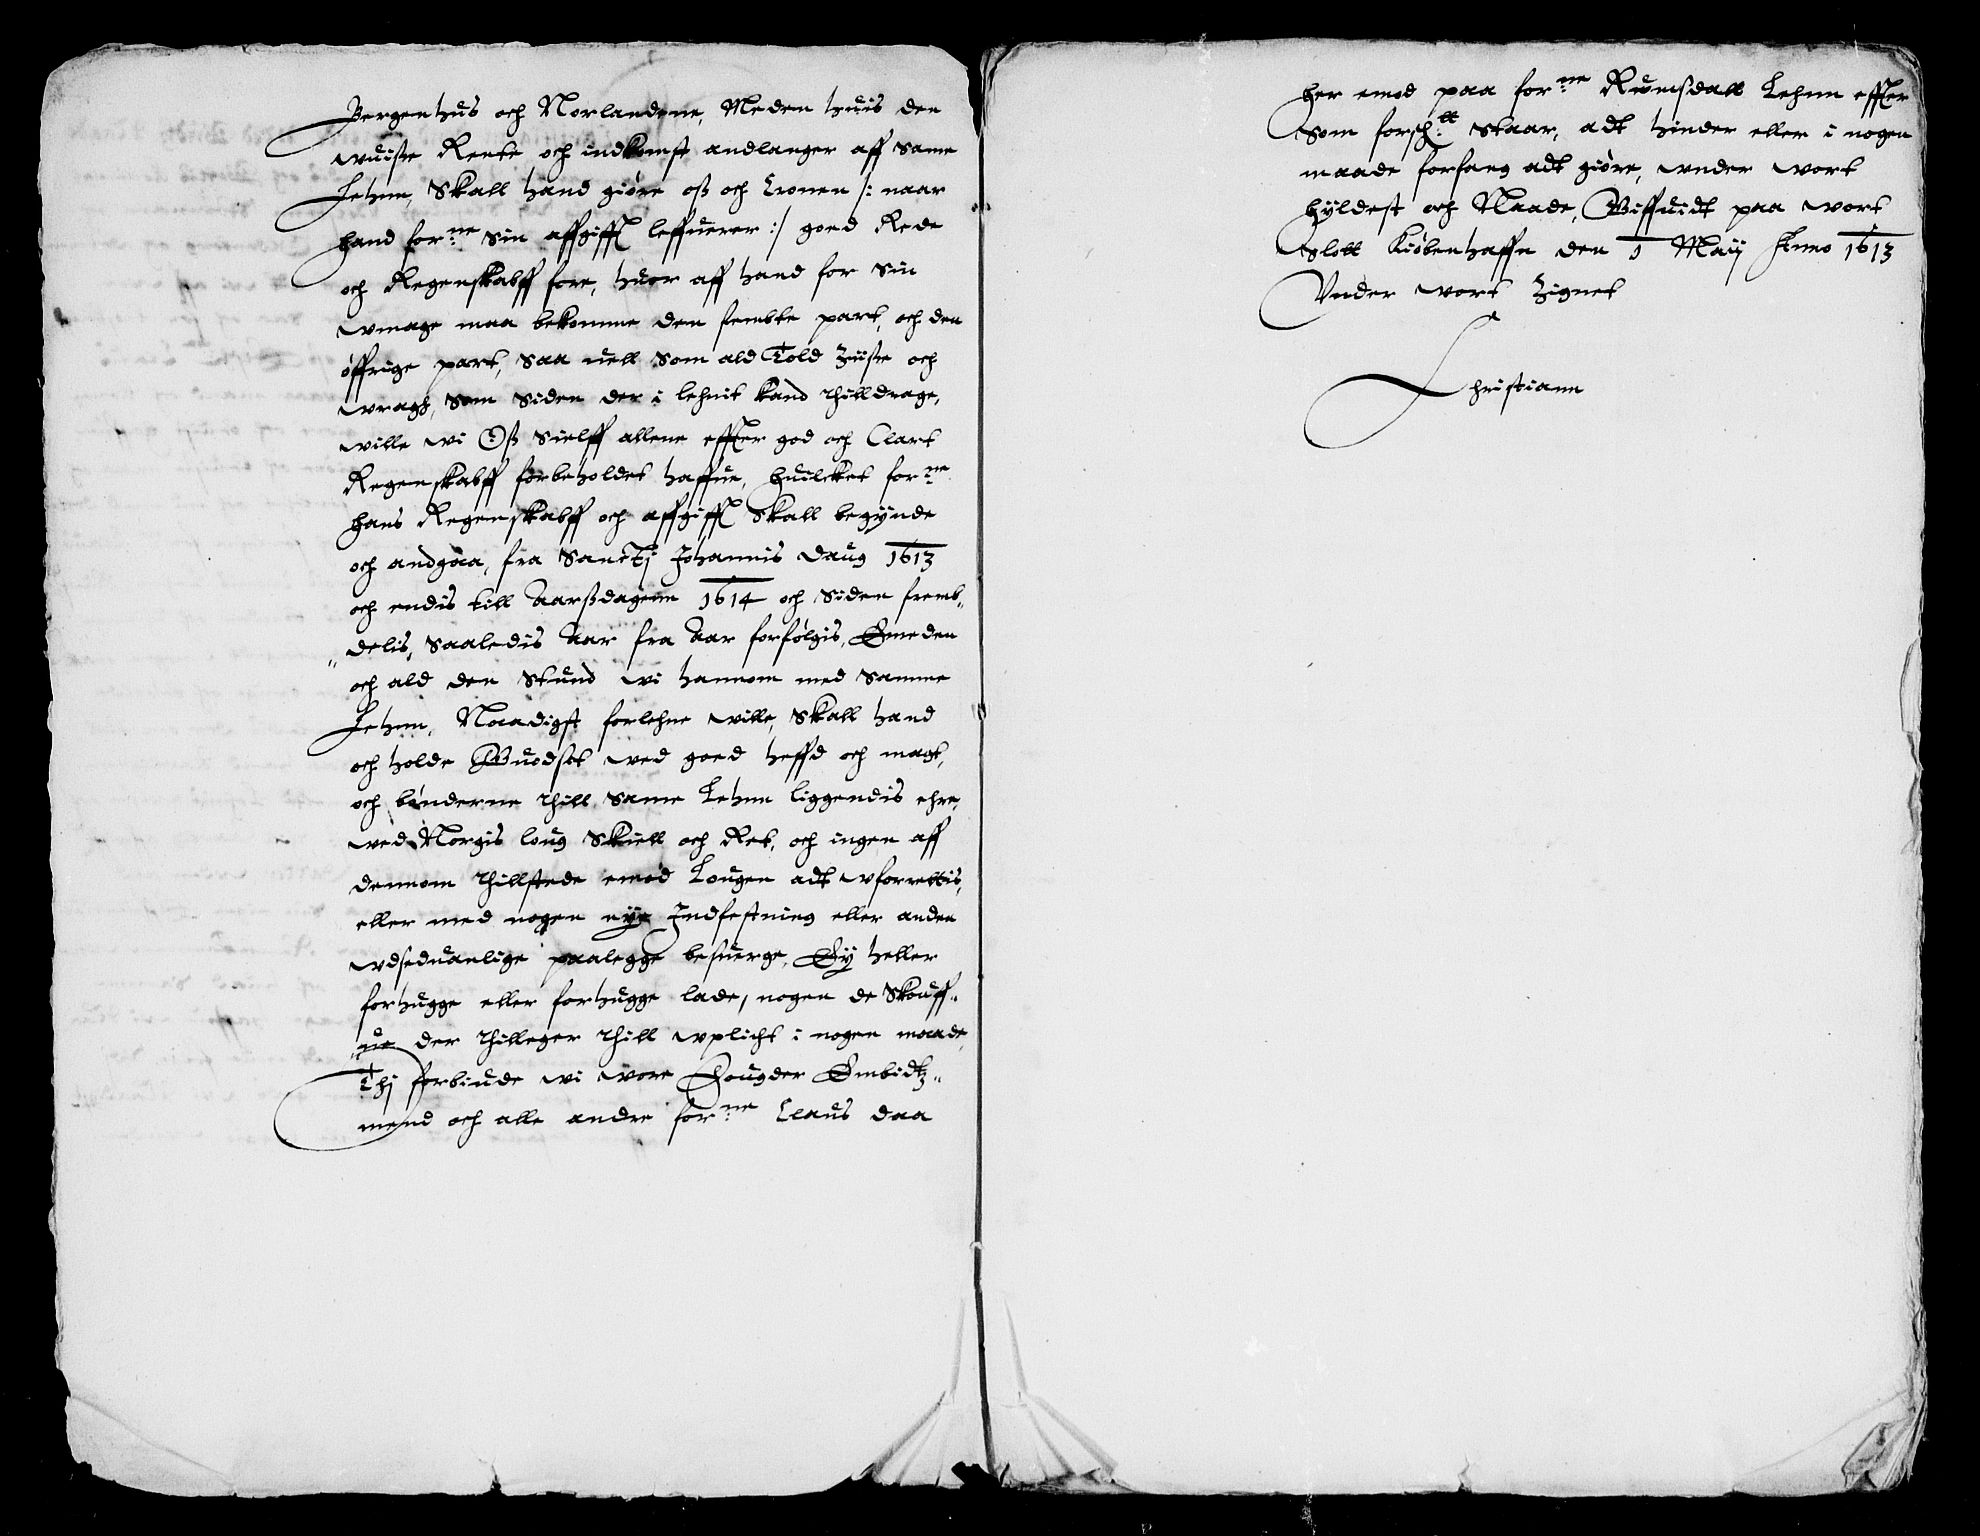 Bergenhus och Norlandene, Meden huis den
wuisse Rente och indkomst andlanger aff same
Lehnn, Skall hand giøre oß och Cronen /: naar
hand forne Sin affgifft leffuerer :/ goed Rede
och Regenskabff fore, huor aff hand for Sin
wmage maa bekomme den fembte part, och den
øffrige part, saa uell som ald Told Zijse och
wragh, som siden der i lehnit kand thilldrage,
wille wi Oß Sielff allene effter god och Clart
Regenskabff forbeholdet haffue, huilcket forne
hans Regenskabff och affgifft Skall begynde
och andgaa, fra Sanctj Johannis daug 1613
och endis till Aarßdagenn 1614 och siden fremb„
„delis, saaledis Aar fra Aar forfølgis, Omeden
och ald den stund wi hannom med samme
Lehnn, Naadigst forlehne wille, Skall hand
och holde Guodset wed goed heffd och magt,
och bønderne thill same Lehnn liggendis ehre,
wed Norgis loug Skiell och Ret, och ingen aff
dennom thillstede emod Lougen adt wforrettis,
eller med nogen nye Indfestning eller anden
wdseduanlige paalegge besuerge, Ey heller
forhugge eller forhugge lade, nogen de Skouff„
„ue der thilleger thill wplicht i nogen maade,
Thj forbiude wi wore Fougder Embidtz„
mend och alle andre forne Claus daa
her emod paa forne Rumsdall Lehnn effter
som forschtt staar, adt hinder eller i nogen
maade forfang adt giøre, wnder wort
hyldest och Naade, Giffuidt paa wort
Slott Kiøbenhaffn den 1 Maij Anno 1613
Vnder wort Zignet
Christiann